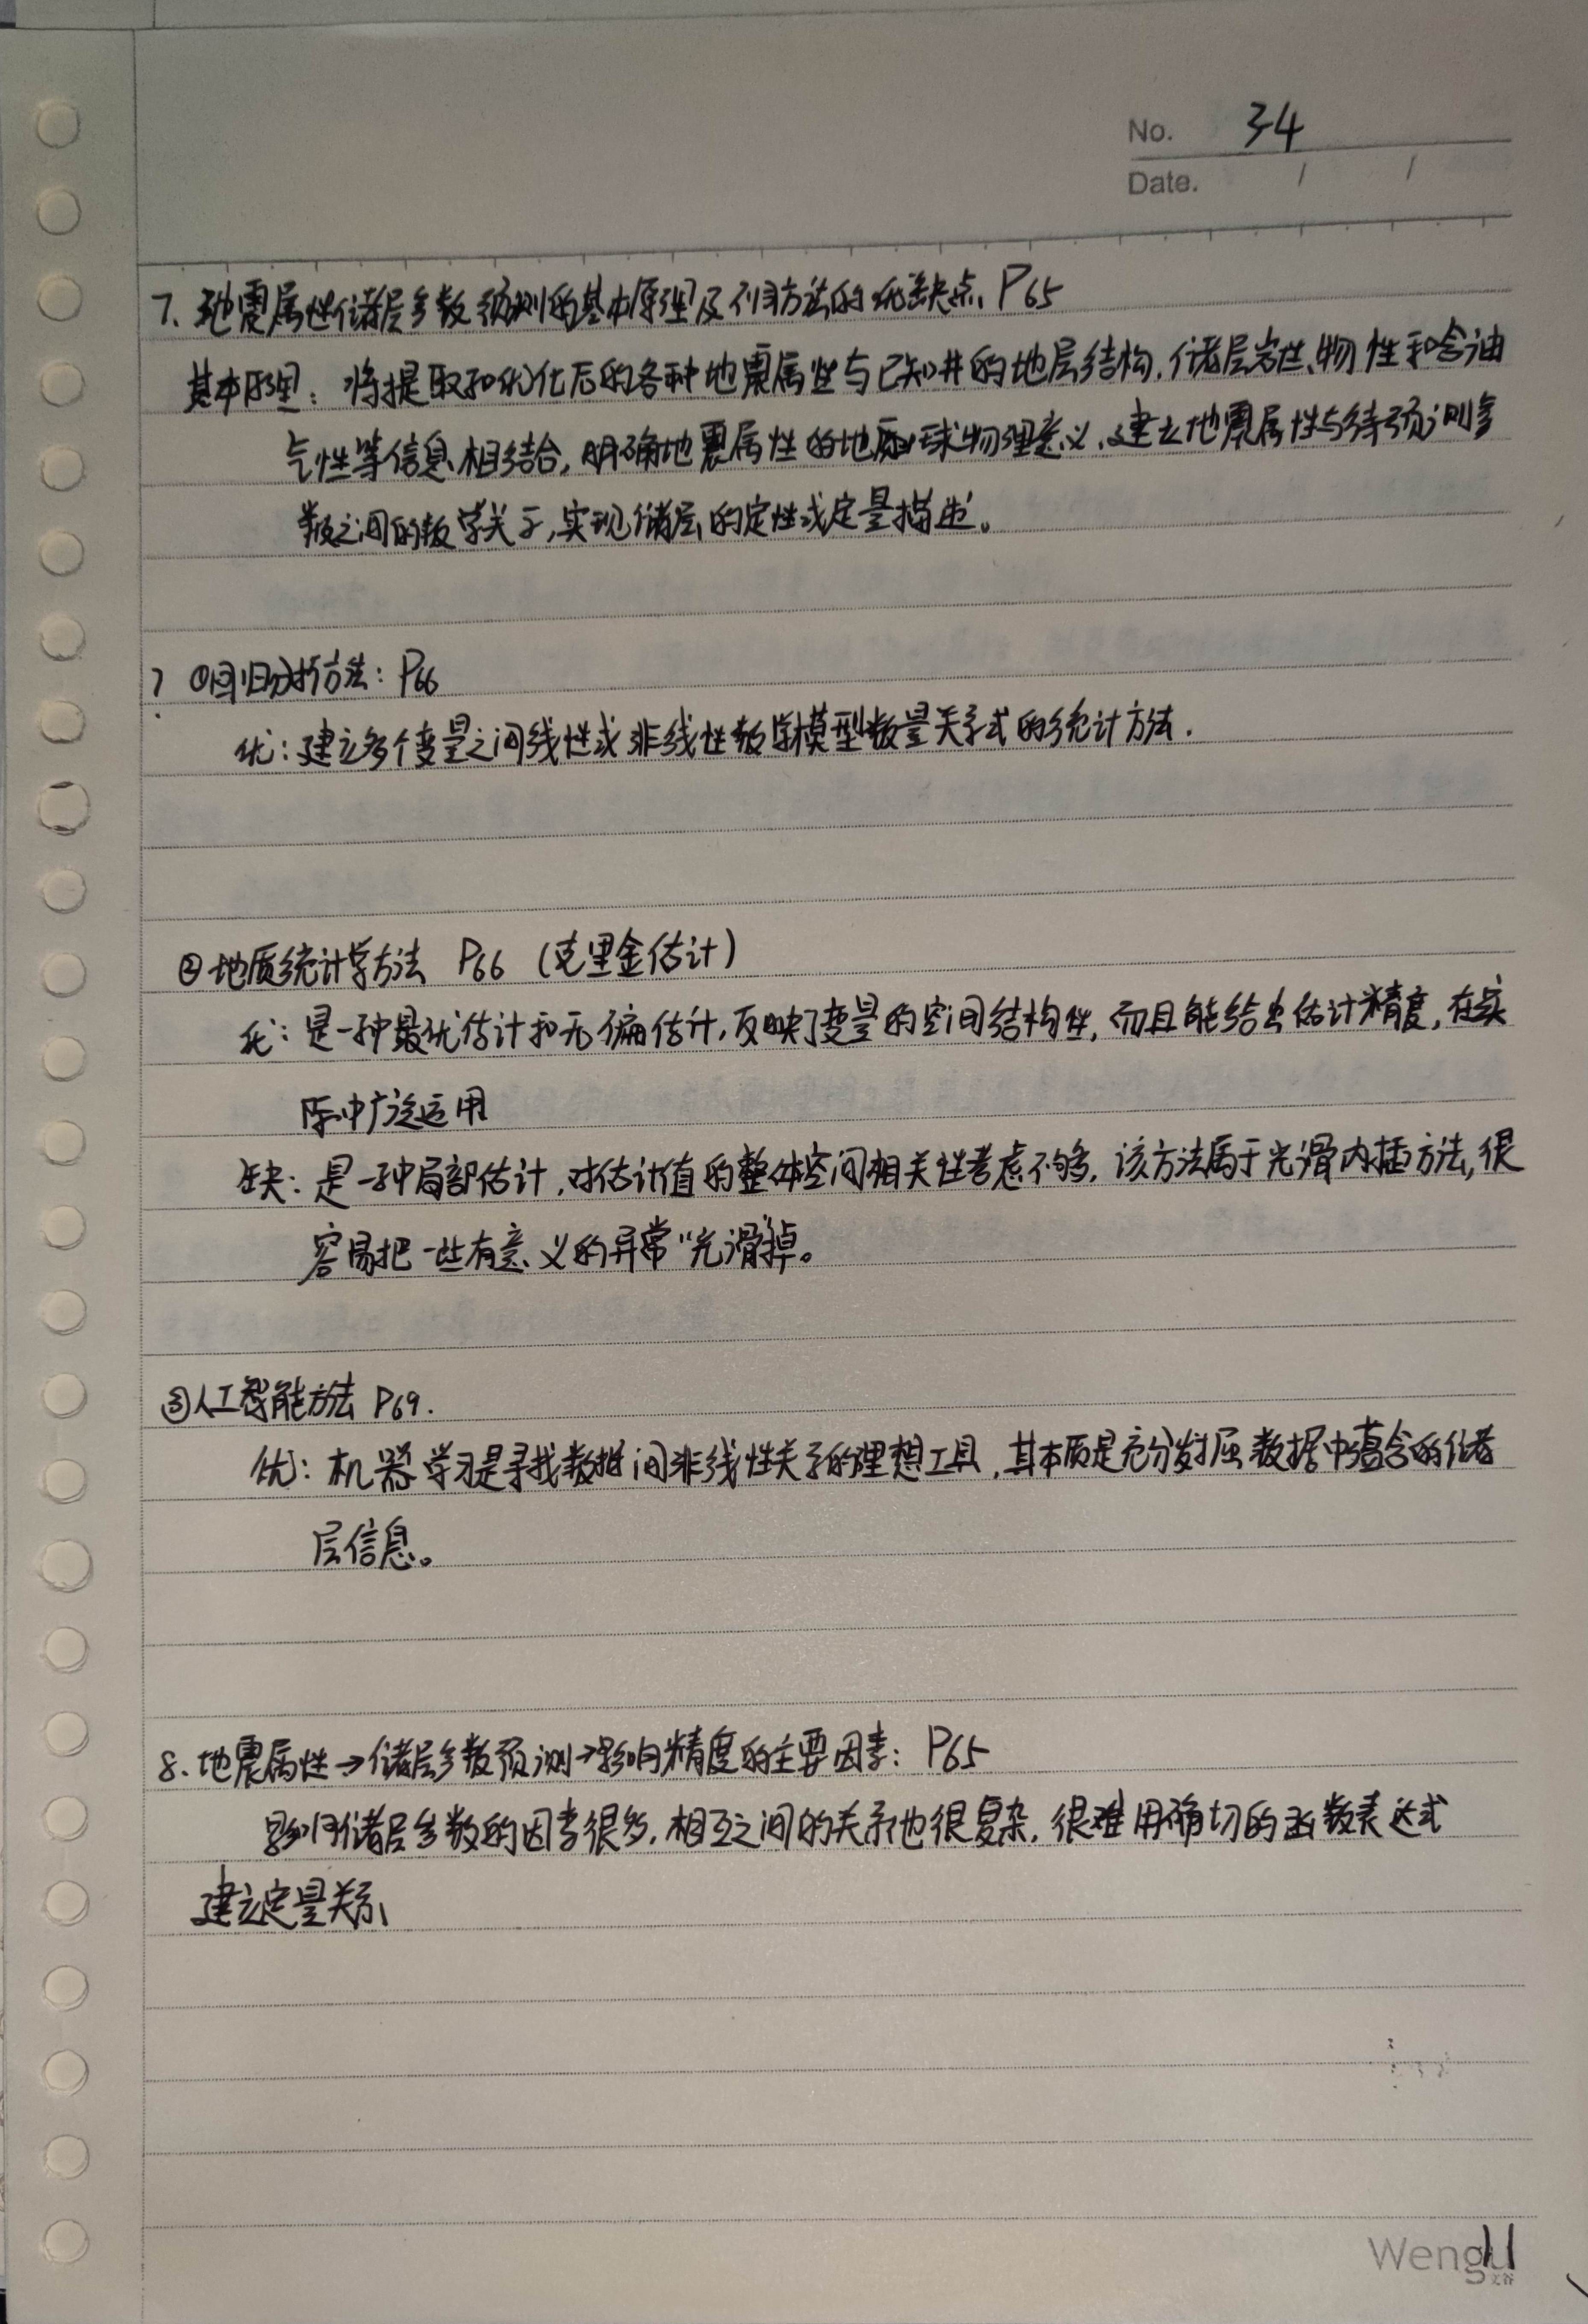 No. 34
Date. / /
7、地震属性储层参数预测的基本原理及不同方法的优缺点、P65
基本原理：将提取和优化后的各种地震属性与已知井的地层结构，储层岩性、物性和含油
气性等信息相结合，明确地震属性的地质地球物理意义，建立地震属性与待预测参
数之间的数学关系，实现储层的定性或定量描述。
？①回归分析方法：P66
优：建立多个变量之间线性或非线性数学模型数量关系式的统计方法.
②地质统计学方法 P66（克里金估计）
优：是一种最优估计和无偏估计，反映了变量的空间结构性，而且能给出估计精度，在实
际中广泛运用
缺：是一种局部估计，对估计值的整体空间相关性考虑不够，该方法属于光滑内插方法，很
容易把一些有意义的异常“光滑”掉。
③人工智能方法 P69.
优：机器学习是寻找数据间非线性关系的理想工具，其本质是充分发掘数据中蕴含的储
层信息。
8、地震属性→储层参数预测→影响精度的主要因素：P65
影响储层参数的因素很多，相互之间的关系也很复杂，很难用确切的函数表达式
建立定量关系、
Wengu
文谷
11